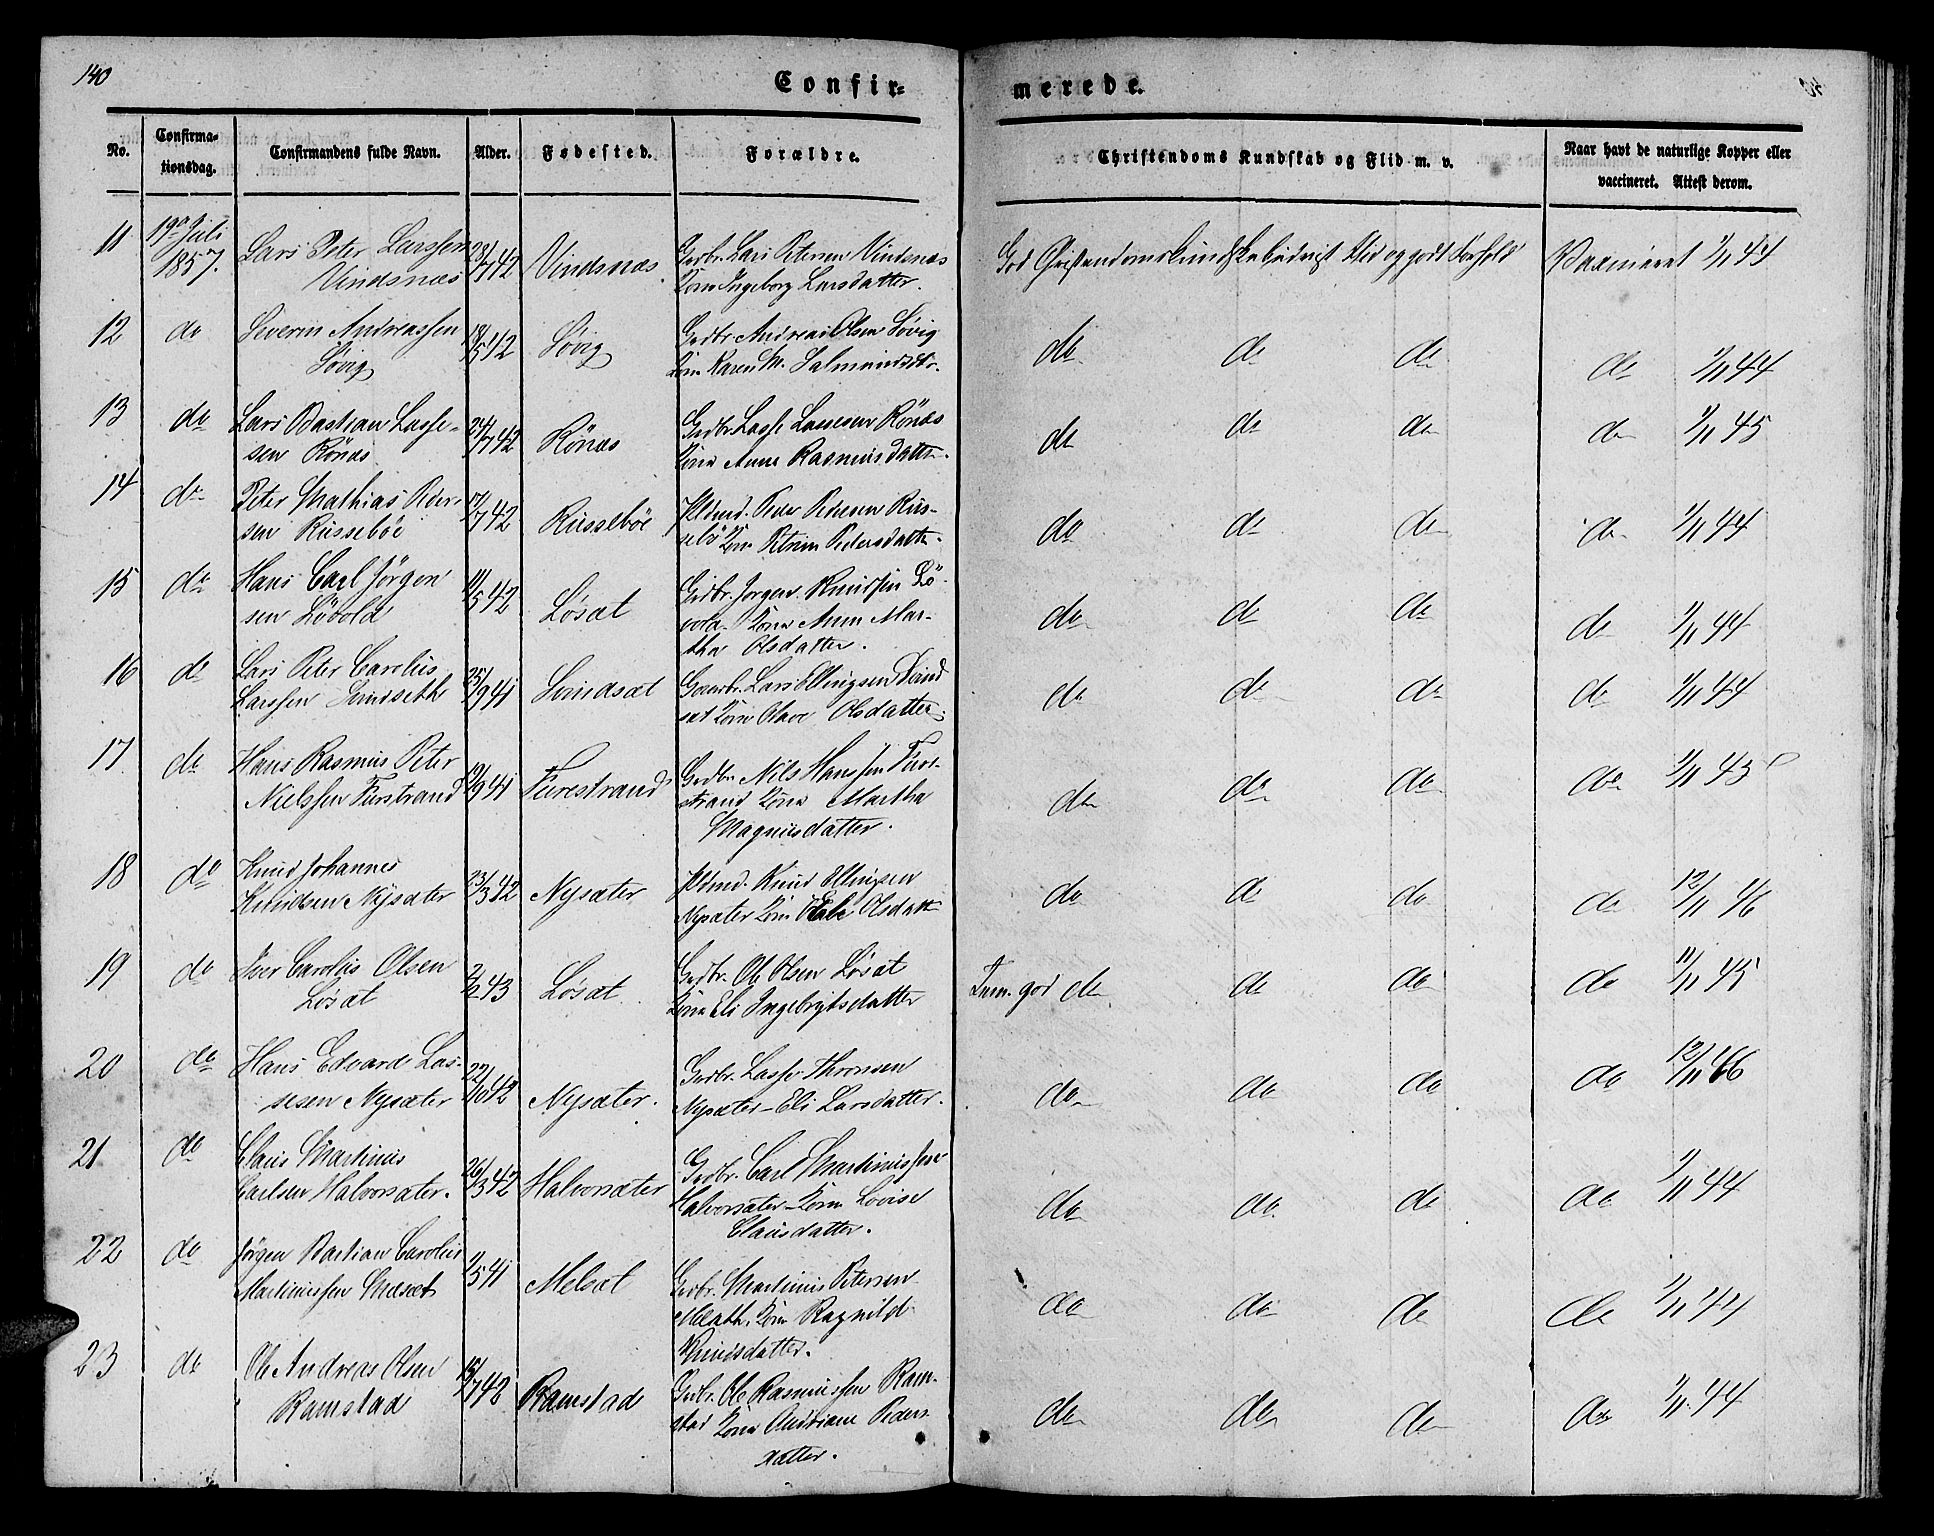 140
Confir=
merede.
No.
Confirma-
tionsdag.
Confirmandens fulde Navn.
Alder.
Fødested.
Forældre.
Christendoms Kundskab og Flid m. v.
Naar havt de naturlige Kopper eller
vaccineret. Attest derom.
11
19de Juli
1857.
Lars Peter Larssen
Vindsnæs
23/7 42
Vindsnæs.
Grdbr. Lars Petersen Vindsnæs
Kone Ingeborg Larsdatter.
God Christendomskundskab og godt Forhold
Vaxineret 1/11 44
12
do
Severin Andreassen
Søvig
18/5 42
Søvig
Grdbr. Andreas Olsen Søvig
Kone Karen M. Salmundsdtr.
do do do
do 1/11 44
13
do
Lars Bastian Lasse-
sen Rönæs
24/7 42
Rönæs
Grdbr. Lasse Larsen Rönæs
Kone Anne Rasmusdatter.
do do do
do 1/11 45
14
do
Peter Mathias Peder-
sen Russeböe
17/7 42
Russeböe
Pldsmd. Peder Pedersen Rus-
sebö Kone Petrine Pedersdatter.
do do do
do 1/11 44
15
do
Hans Carl Jörgen
sen Lövold
11/5 42
Løsæt
Grdbr. Jørgen Knudsen Lö-
vold. Kone Anne Mar-
tha Olsdatter.
do do do
do 1/11 44
16
do
Lars Peter Carolus
Larssen Sundseth
25/9 41
Sundsæt
Gaardbr. Lars Ellingsen Sund
sæt Kone Olave Olsdatter.
do do do
do 1/11 44
17
do
Hans Rasmus Peter
Nielssen Furstrand
19/9 41
Furestrand
Grdbr. Nils Hanssen Fure-
strand Kone Martha
Magnusdatter.
do do do
do 1/11 45
18
do
Knud Johannes
Knudsen Nysæter
23/3 42
Nysæter
Pldsmd. Knud Ellingsen
Nysæter Kone Olsdatter
do do do
do 12/11 46
19
do
Iver Carolus Olsen
Løsæt
2/2 43
Løsæt
Grdbr. Ole Olsen Løsæt
Kone Eli Ingebrigtsdatter
Tem. god do do do
do 11/11 45
20
do
Hans Edvard Las-
sesen Nysæter
22/10 42
Nysæter.
Grdbr. Lasse Thronsen
Nysæter – Eli Larsdatter.
do do do
do 12/11 46
21
do
Claus Martinus
Carlsen Halvorsæter.
26/3 42
Halvorsæter
Grdbr. Carl Martinussen
Halvorsæter – Kone Lovise
Clausdatter.
do do do
do 1/11 44
22
do
Jørgen Bastian Carolus
Martinussen Melsæt
1/5 41
Melsæt
Grdbr. Martinus Petersen
Kone Ragnild
Knudsdatter.
do do do
do 1/11 44
23
do
Ole Andreas Olsen
Ramstad
15/7 42
Ramstad
Grdbr. Ole Rasmussen Ram-
stad Kone Andriane Peders-
datter.
do do do
do 1/11 44